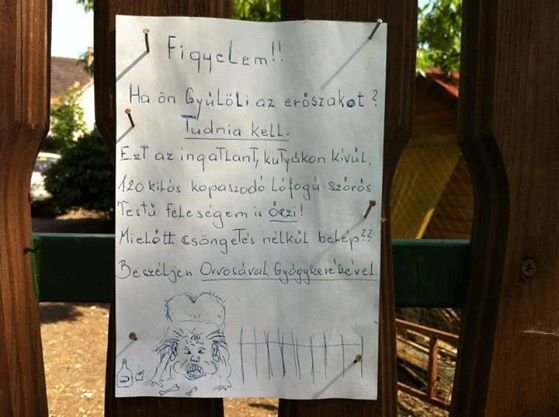 Figyelem!!
Ha ön Gyűlöli az erőszakot?
Tudnia kell.
Ezt az ingatlant, kutyákon kívül,
120 kilós kopaszodó lófogú szőrös
Testű feleségem is őrzi!
Mielőtt csöngetés nélkül belép??
Beszéljen Orvosával, Gyógyszerészével